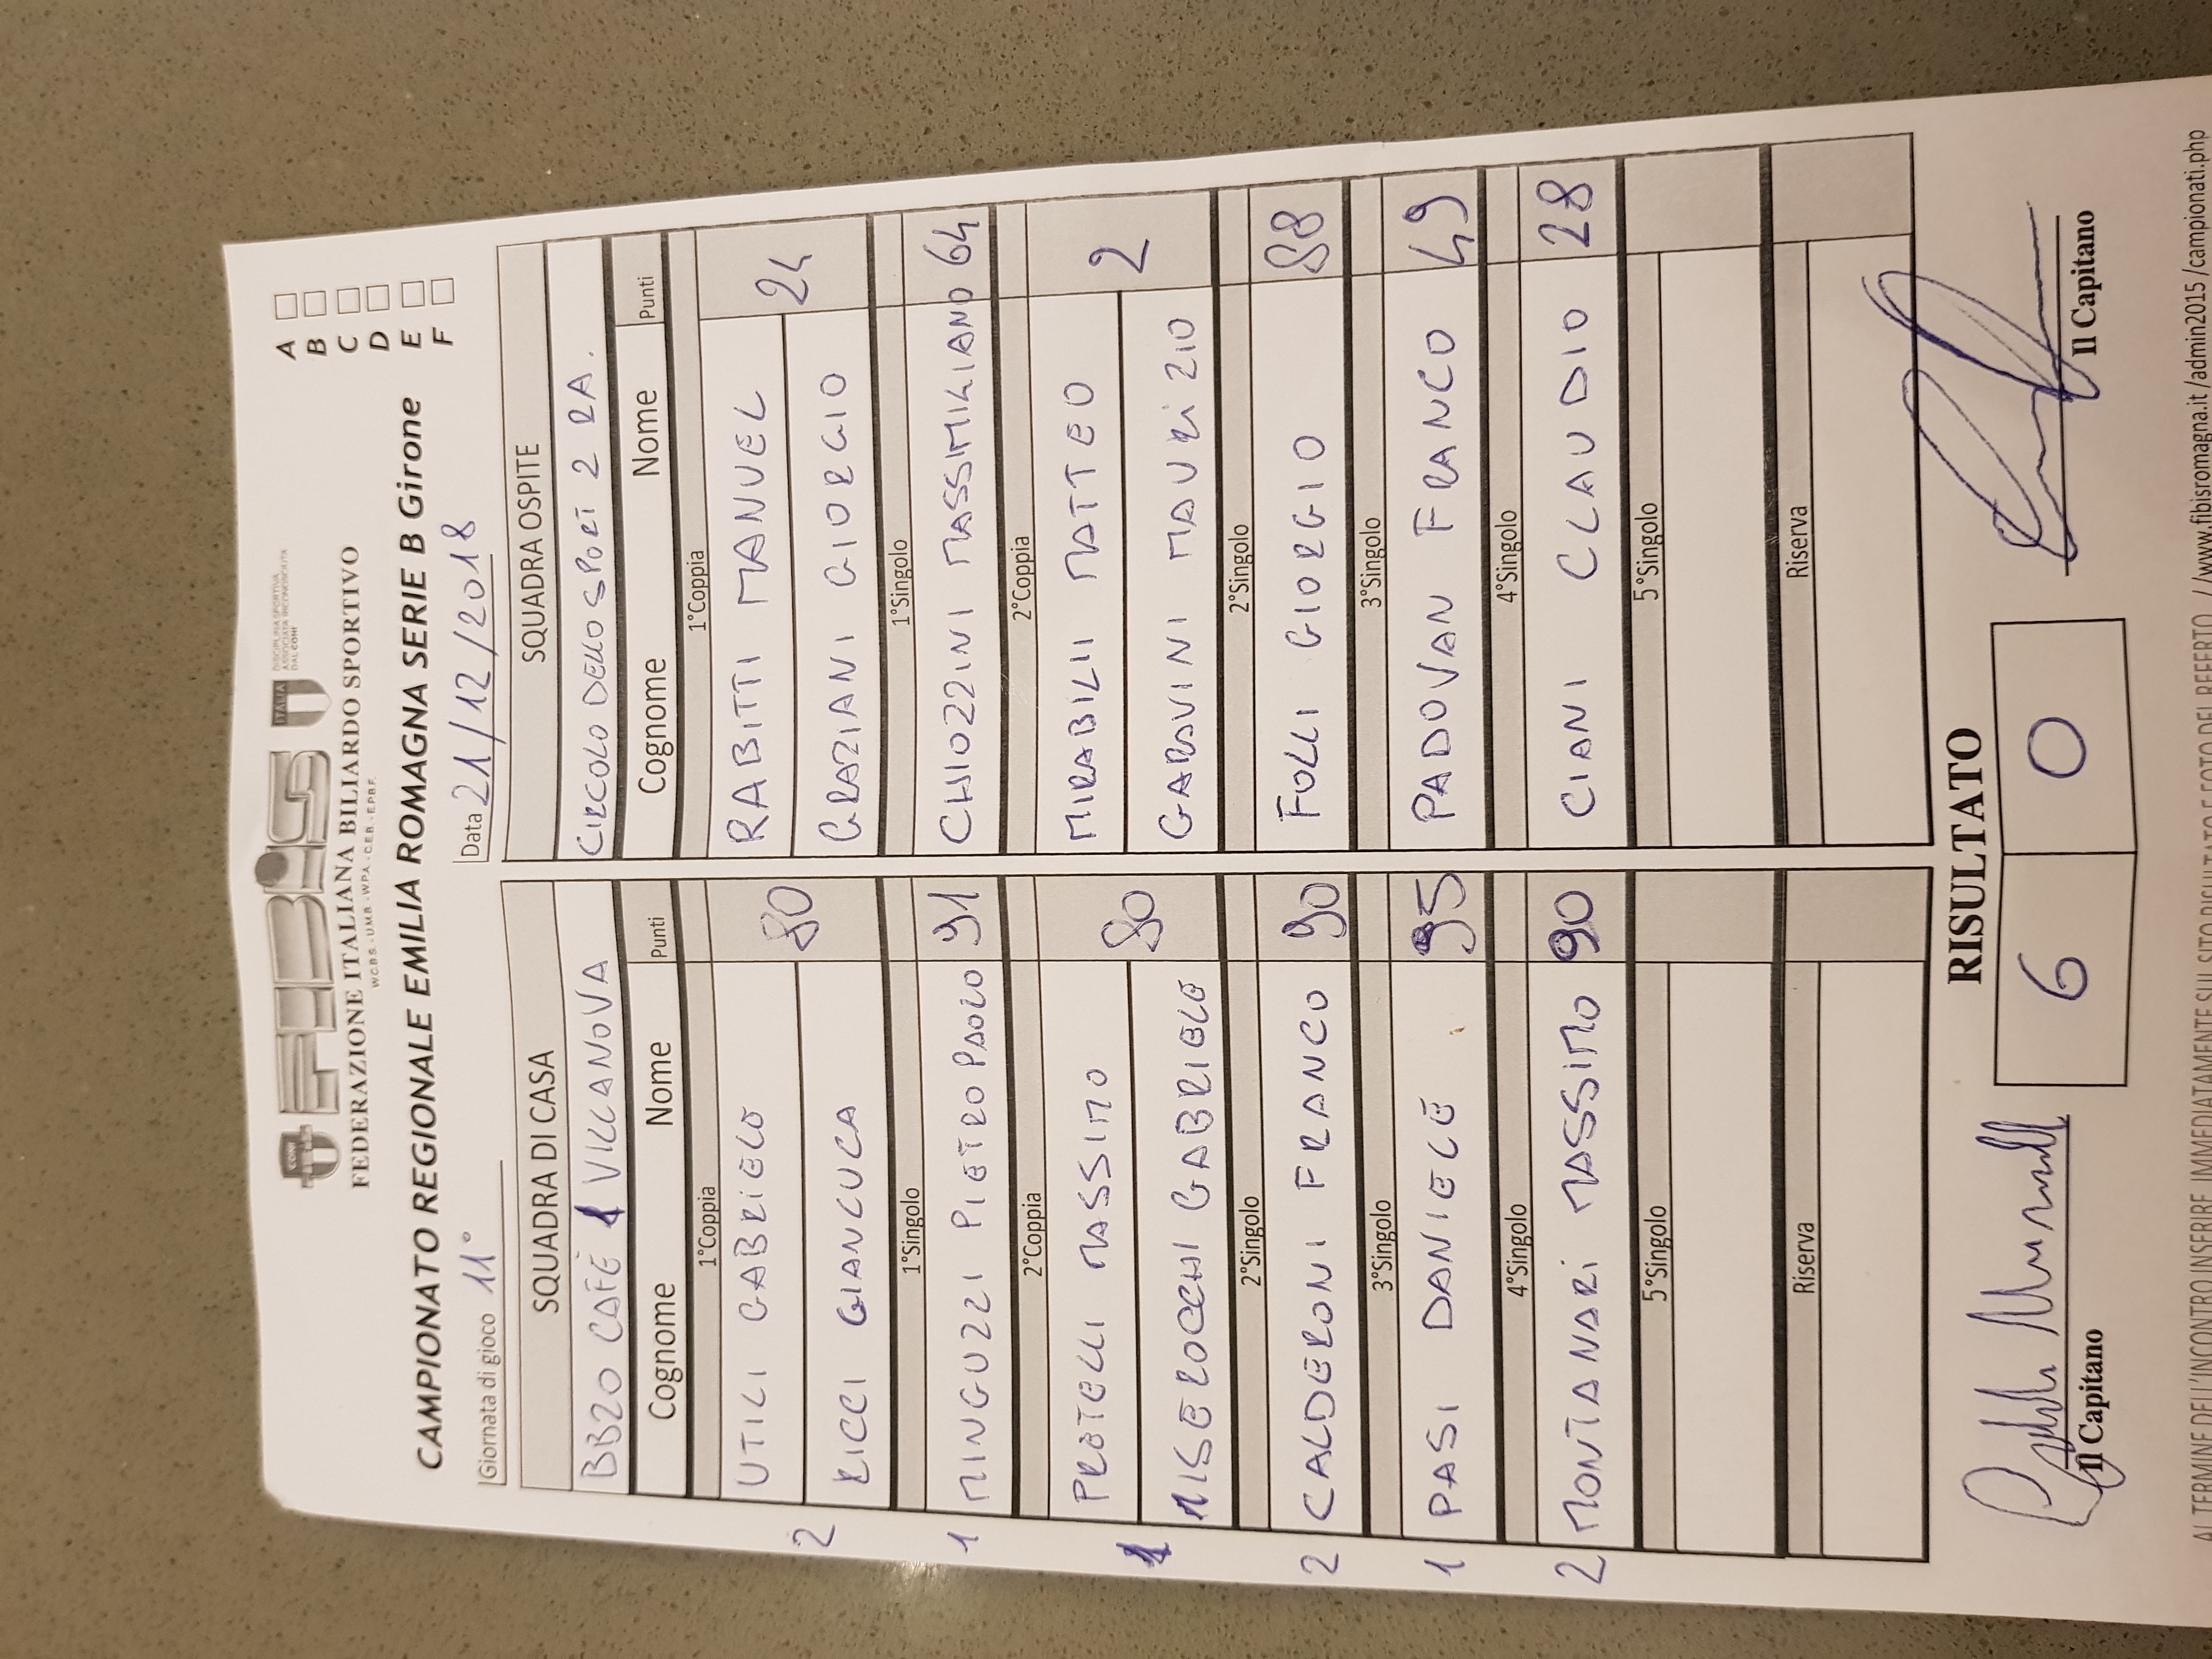 FIBiS
ITALIA
CONI
DISCIPLINA SPORTIVA
ASSOCIATA RICONOSCIUTA
DAL CONI
FEDERAZIONE ITALIANA BILIARDO SPORTIVO
W.C.B.S. - U.M.B. - W.P.A. - C.E.B. - E.P.B.F.
A
B
C
D
E
F
CAMPIONATO REGIONALE EMILIA ROMAGNA SERIE B Girone
Giornata di gioco 11° Data 21/12/2018
SQUADRA DI CASA SQUADRA OSPITE
BB20 CAFÈ 1 VILLANOVA CIRCOLO DELLO SPORT 2 RA.
Cognome Nome Punti Cognome Nome Punti
1°Coppia 1°Coppia
2 UTILI GABRIELE 80 RABITTI MANUEL 24
RICCI GIANLUCA GRAZIANI GIORGIO
1°Singolo 1°Singolo
1 MINGUZZI PIETRO PAOLO 91 CHIOZZINI MASSIMILIANO 64
2°Coppia 2°Coppia
1 PRETELLI MASSIMO 80 MIRABILII MATTEO 2
MISEROCCHI GABRIELE GARAVINI MAURIZIO
2°Singolo 2°Singolo
2 CALDERONI FRANCO 90 FOLLI GIORGIO 88
3°Singolo 3°Singolo
1 PASI DANIELE 95 PADOVAN FRANCO 49
4°Singolo 4°Singolo
2 MONTANARI MASSIMO 90 CIANI CLAUDIO 28
5°Singolo 5°Singolo
Riserva Riserva
RISULTATO
6 0
Il Capitano Il Capitano
AL TERMINE DELL'INCONTRO INSERIRE IMMEDIATAMENTE SUL SITO RISULTATO E FOTO DEL REFERTO //www.fibisromagna.it /admin2015 /campionati.php